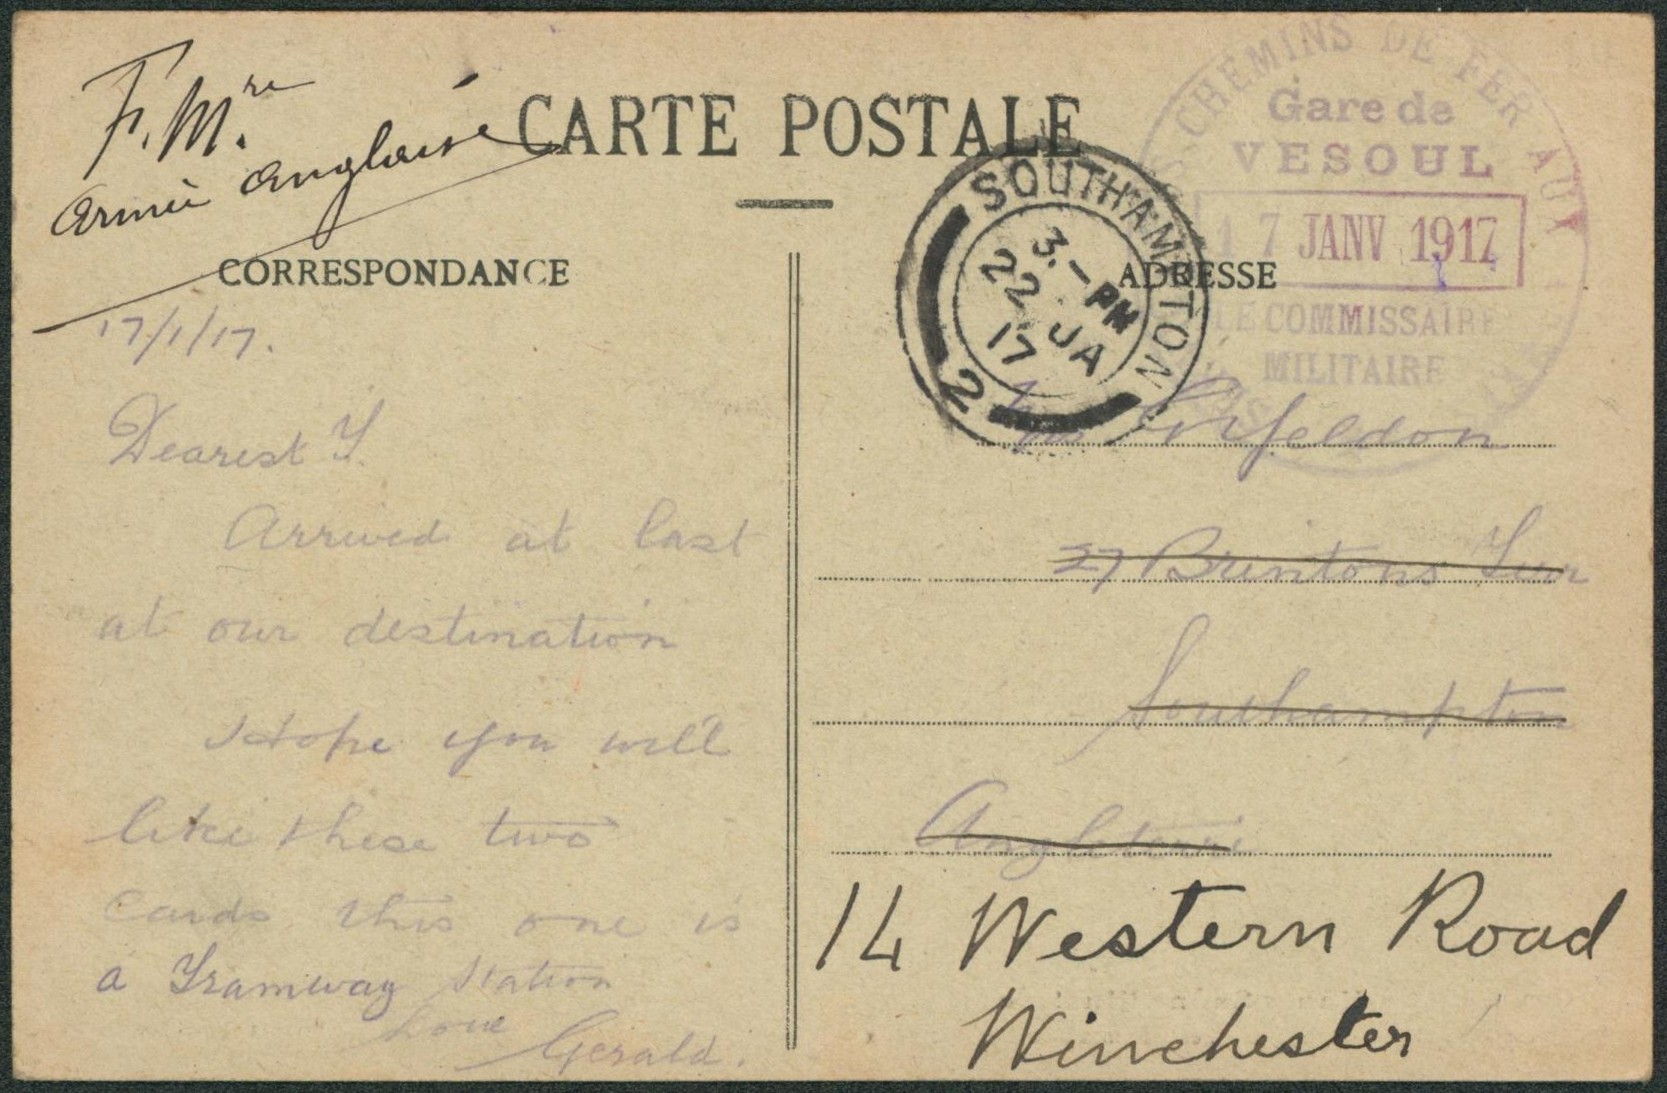 F. Mre
Armée Anglaise
CARTE POSTALE
CORRESPONDANCE
17/1/17.
Dearest Y
Arrived at last
at our destination
Hope you will
like these two
cards this one is
a Tramway Station
Love
Gerald.
CHEMINS DE FER AUX
Gare de
VESOUL
17 JANV 1917
LE COMMISSAIRE
MILITAIRE
SOUTHAMPTON
3.- PM
22 JA
17
2
ADRESSE
27 Brintons Terr
Southampton
Angleterre
14 Western Road
Winchester